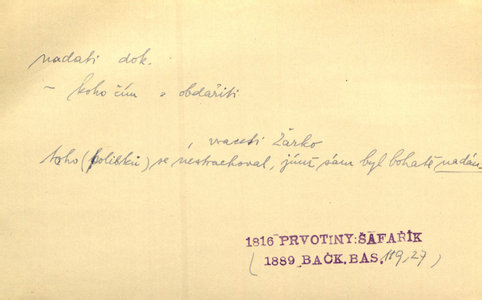 nadati dok.
– koho čím = obdařiti
, vraceti Žárko
toho (políčků) se nestrachoval, jímž sám byl bohatě nadán.
1816 PRVOTINY: ŠAFAŘÍK
( 1889 BAČK. BÁS. 189, 27 )